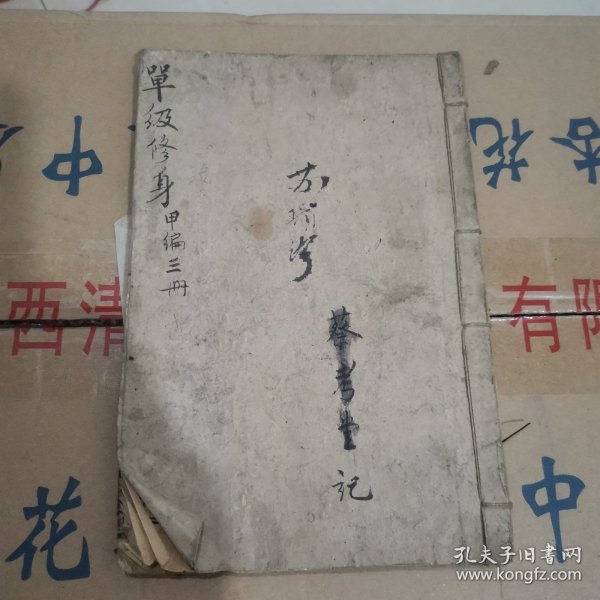 單級修身甲編三册
蔡考堂記
中
杏花
西清
有限
花
中
孔夫子旧书网
www.kongfz.com